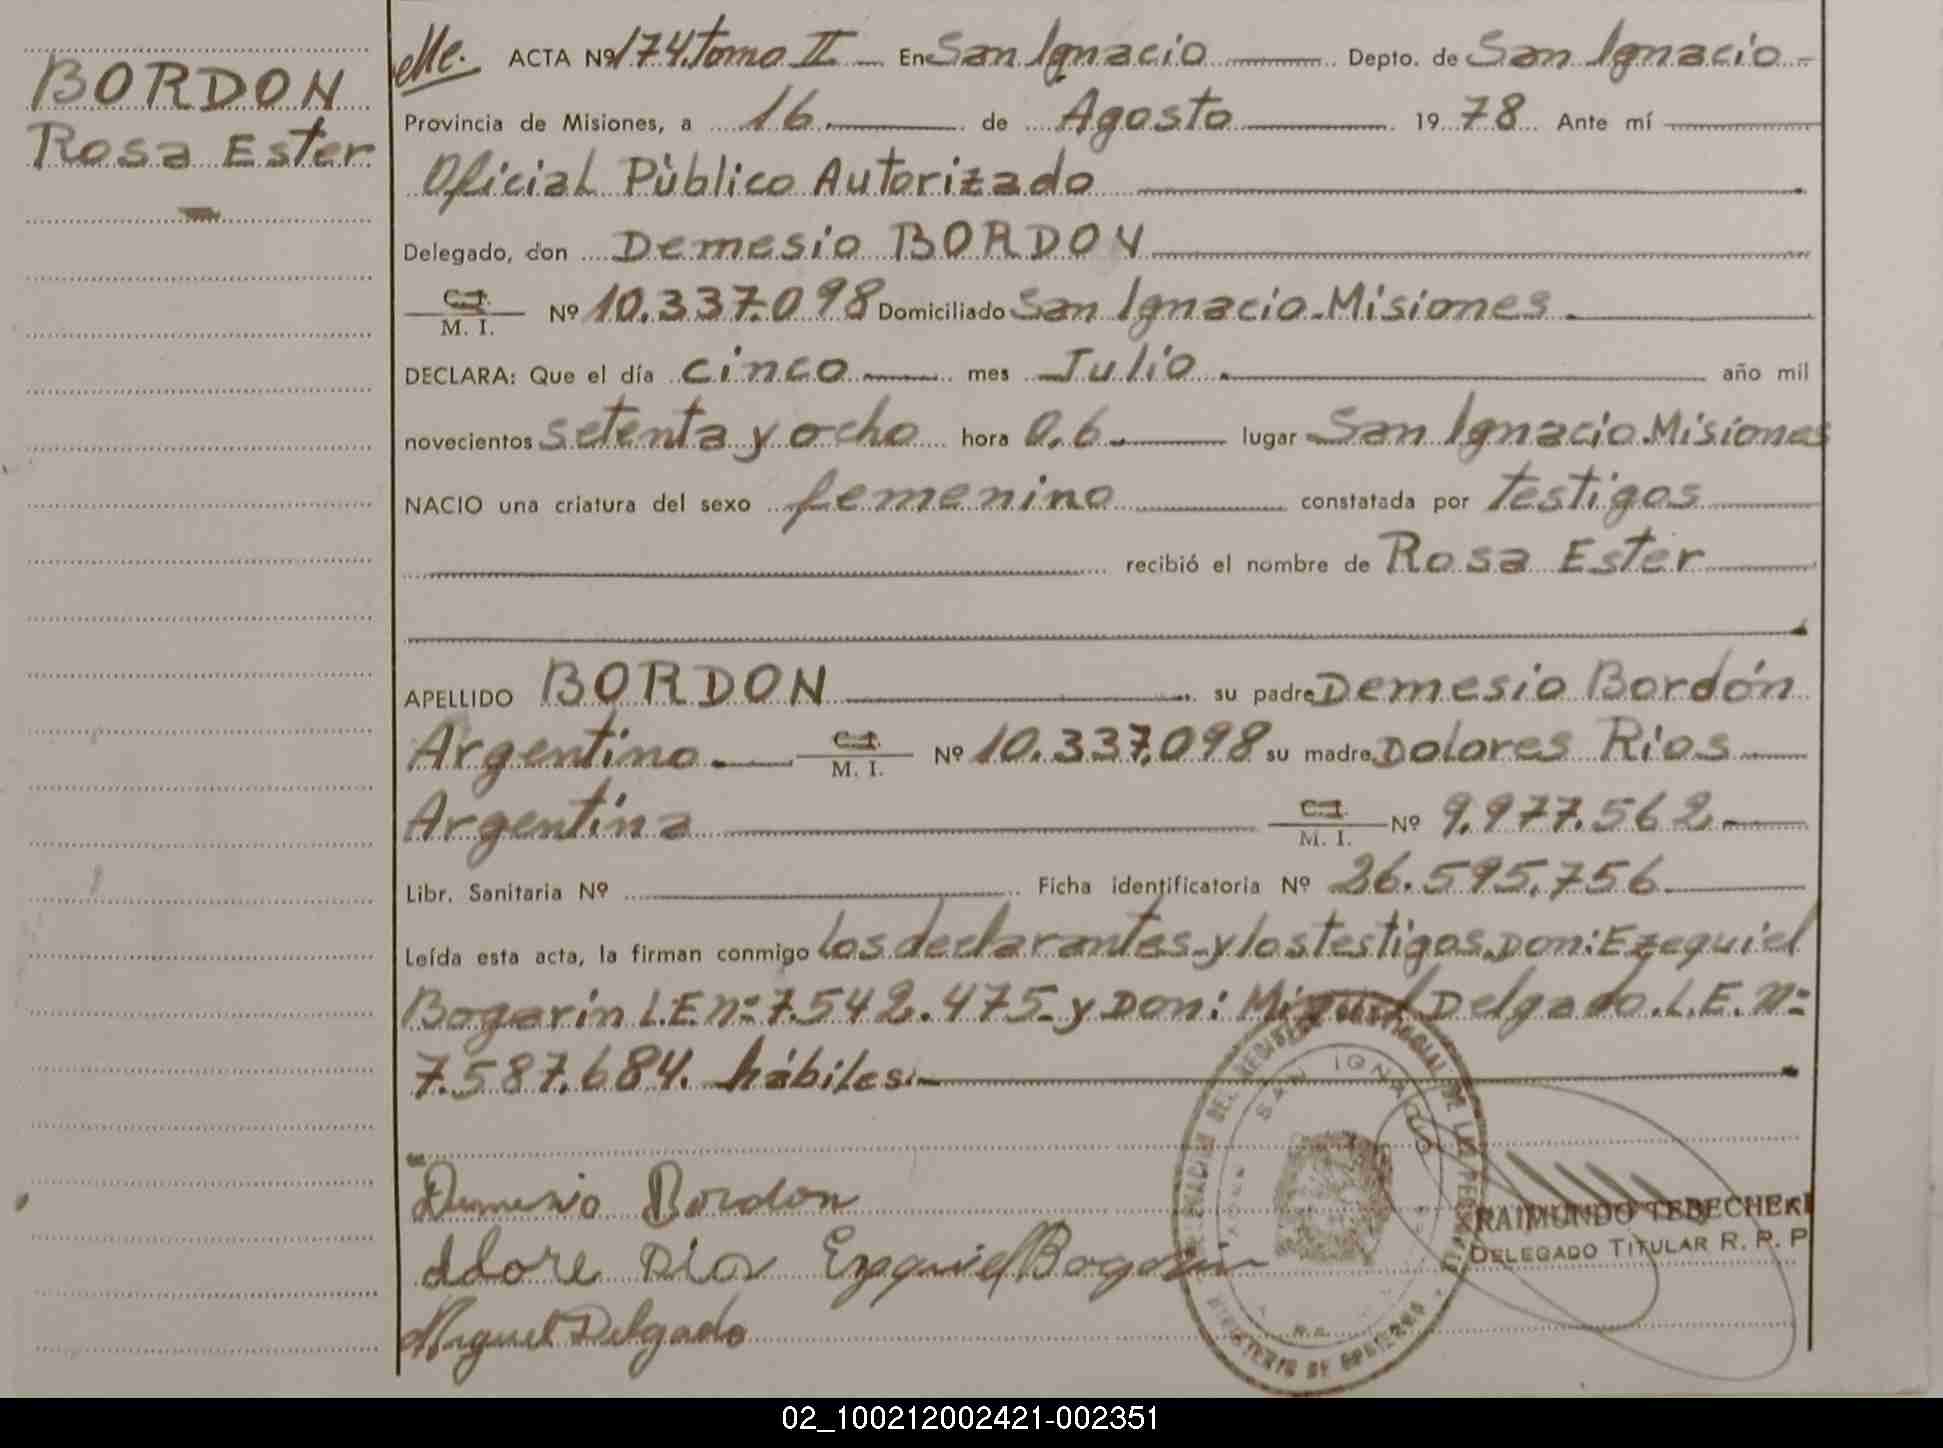 BORDON
Rosa Ester
Me. ACTA Nº 174. Tomo II En San Ignacio Depto. de San Ignacio
Provincia de Misiones, a 16 de Agosto 1978 Ante mí
Oficial Público Autorizado
Delegado, don Demesio BORDON
C.I. M. I. Nº 10.337.098 Domiciliado San Ignacio.Misiones
DECLARA: Que el día cinco mes Julio año mil
novecientos setenta y ocho hora 0.6 lugar San Ignacio.Misiones
NACIO una criatura del sexo femenino constatada por testigos
recibió el nombre de Rosa Ester
APELLIDO BORDON su padre Demesio Bordón
Argentino C.I. M. I. Nº 10.337.098 su madre Dolores Rios
Argentina C.I. M. I. Nº 9.977.562
Libr. Sanitaria Nº Ficha identificatoria Nº 26.595.756
Leída esta acta, la firman conmigo los declarantes y los testigos Don: Ezequiel
Bogarin L.E.nº 7.542.475 y Don: Miguel Delgado.L.E.Nº
7.587.684. hábiles.
Demesio Bordon
Ezequiel Bogarin
Miguel Delgado
SAN IGNACIO
MINISTERIO DE GOBIERNO
RAIMUNDO TEBECHERI
DELEGADO TITULAR R. P. P
02_100212002421-002351